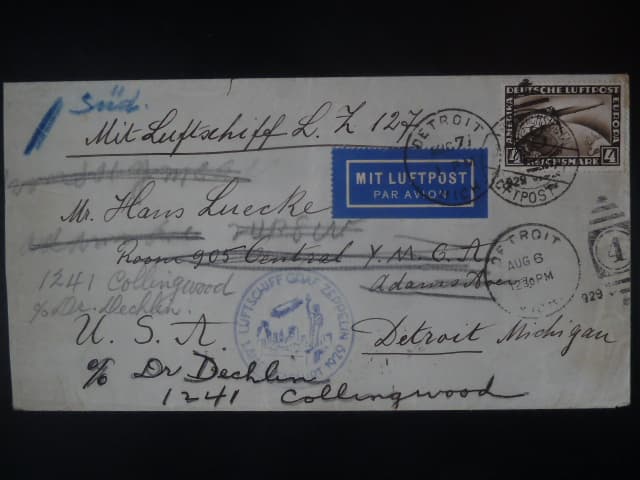 Süd.
Mit Luftschiff L. Z 127
DEUTSCHE LUFTPOST
AMERIKA
EUROPA
4 REICHSMARK 4
DETROIT
AUG 7
MICH
LUFTPOST
MIT LUFTPOST
PAR AVION
Mr. Hans Luecke
Room 905 Central Y.M.C.A
Adams Ave
1241 Collingwood
c/o Dr. Dechlin.
DETROIT
AUG 6
12 30 PM
1929
4
LUFTSCHIFF GRAF ZEPPELIN
U. S. A.
Detroit Michigan
c/o Dr Dechlin
1241 Collingwood